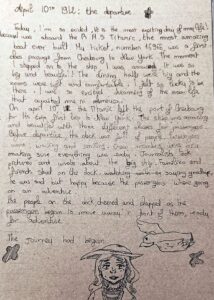 April 10th 1912: the departure
Today, I'm so excited, it is the most exciting day of my life!
because I'm aboard the R.M.S Titanic, the most amazing
boat ever built! My ticket, number was a first
class passage from Cherbourg to New York. The moment
I stepped on to the ship I was amazed. It was so
big and beautiful! The dining halls were big and the
rooms were soft and comfortable. I felt so lucky to be
there, I was so excited, dreaming of the new life
that awaited me in America.
On april 10 the Titanic left the port of Cherbourg
for its very first trip to New York. The ship was amazing
and beautiful with three different classes for passengers.
Before departure, the dock was full of people. Passengers
were waving and smiling. Crew members were
making sure everything was ready. Journalists took
pictures and wrote about the big ship. Families and
friends stood on the dock, watching saying goodbye
sad but happy because the passengers were going
on an adventure.
The people on the dock cheered and clapped as the
passengers began to move away in front of them, ready
for adventure.
The journey had began